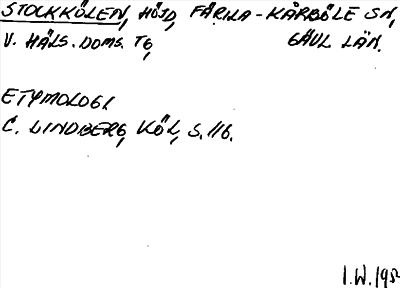 STOCKKÖLEN, HÖJD, FÄRILA-KÅRBÖLE SN,
V. HÄLS. DOMS. TG, GÄVL LÄN.
ETYMOLOGI
C. LINDBERG, KÖL, S. 116.
I.W. 195